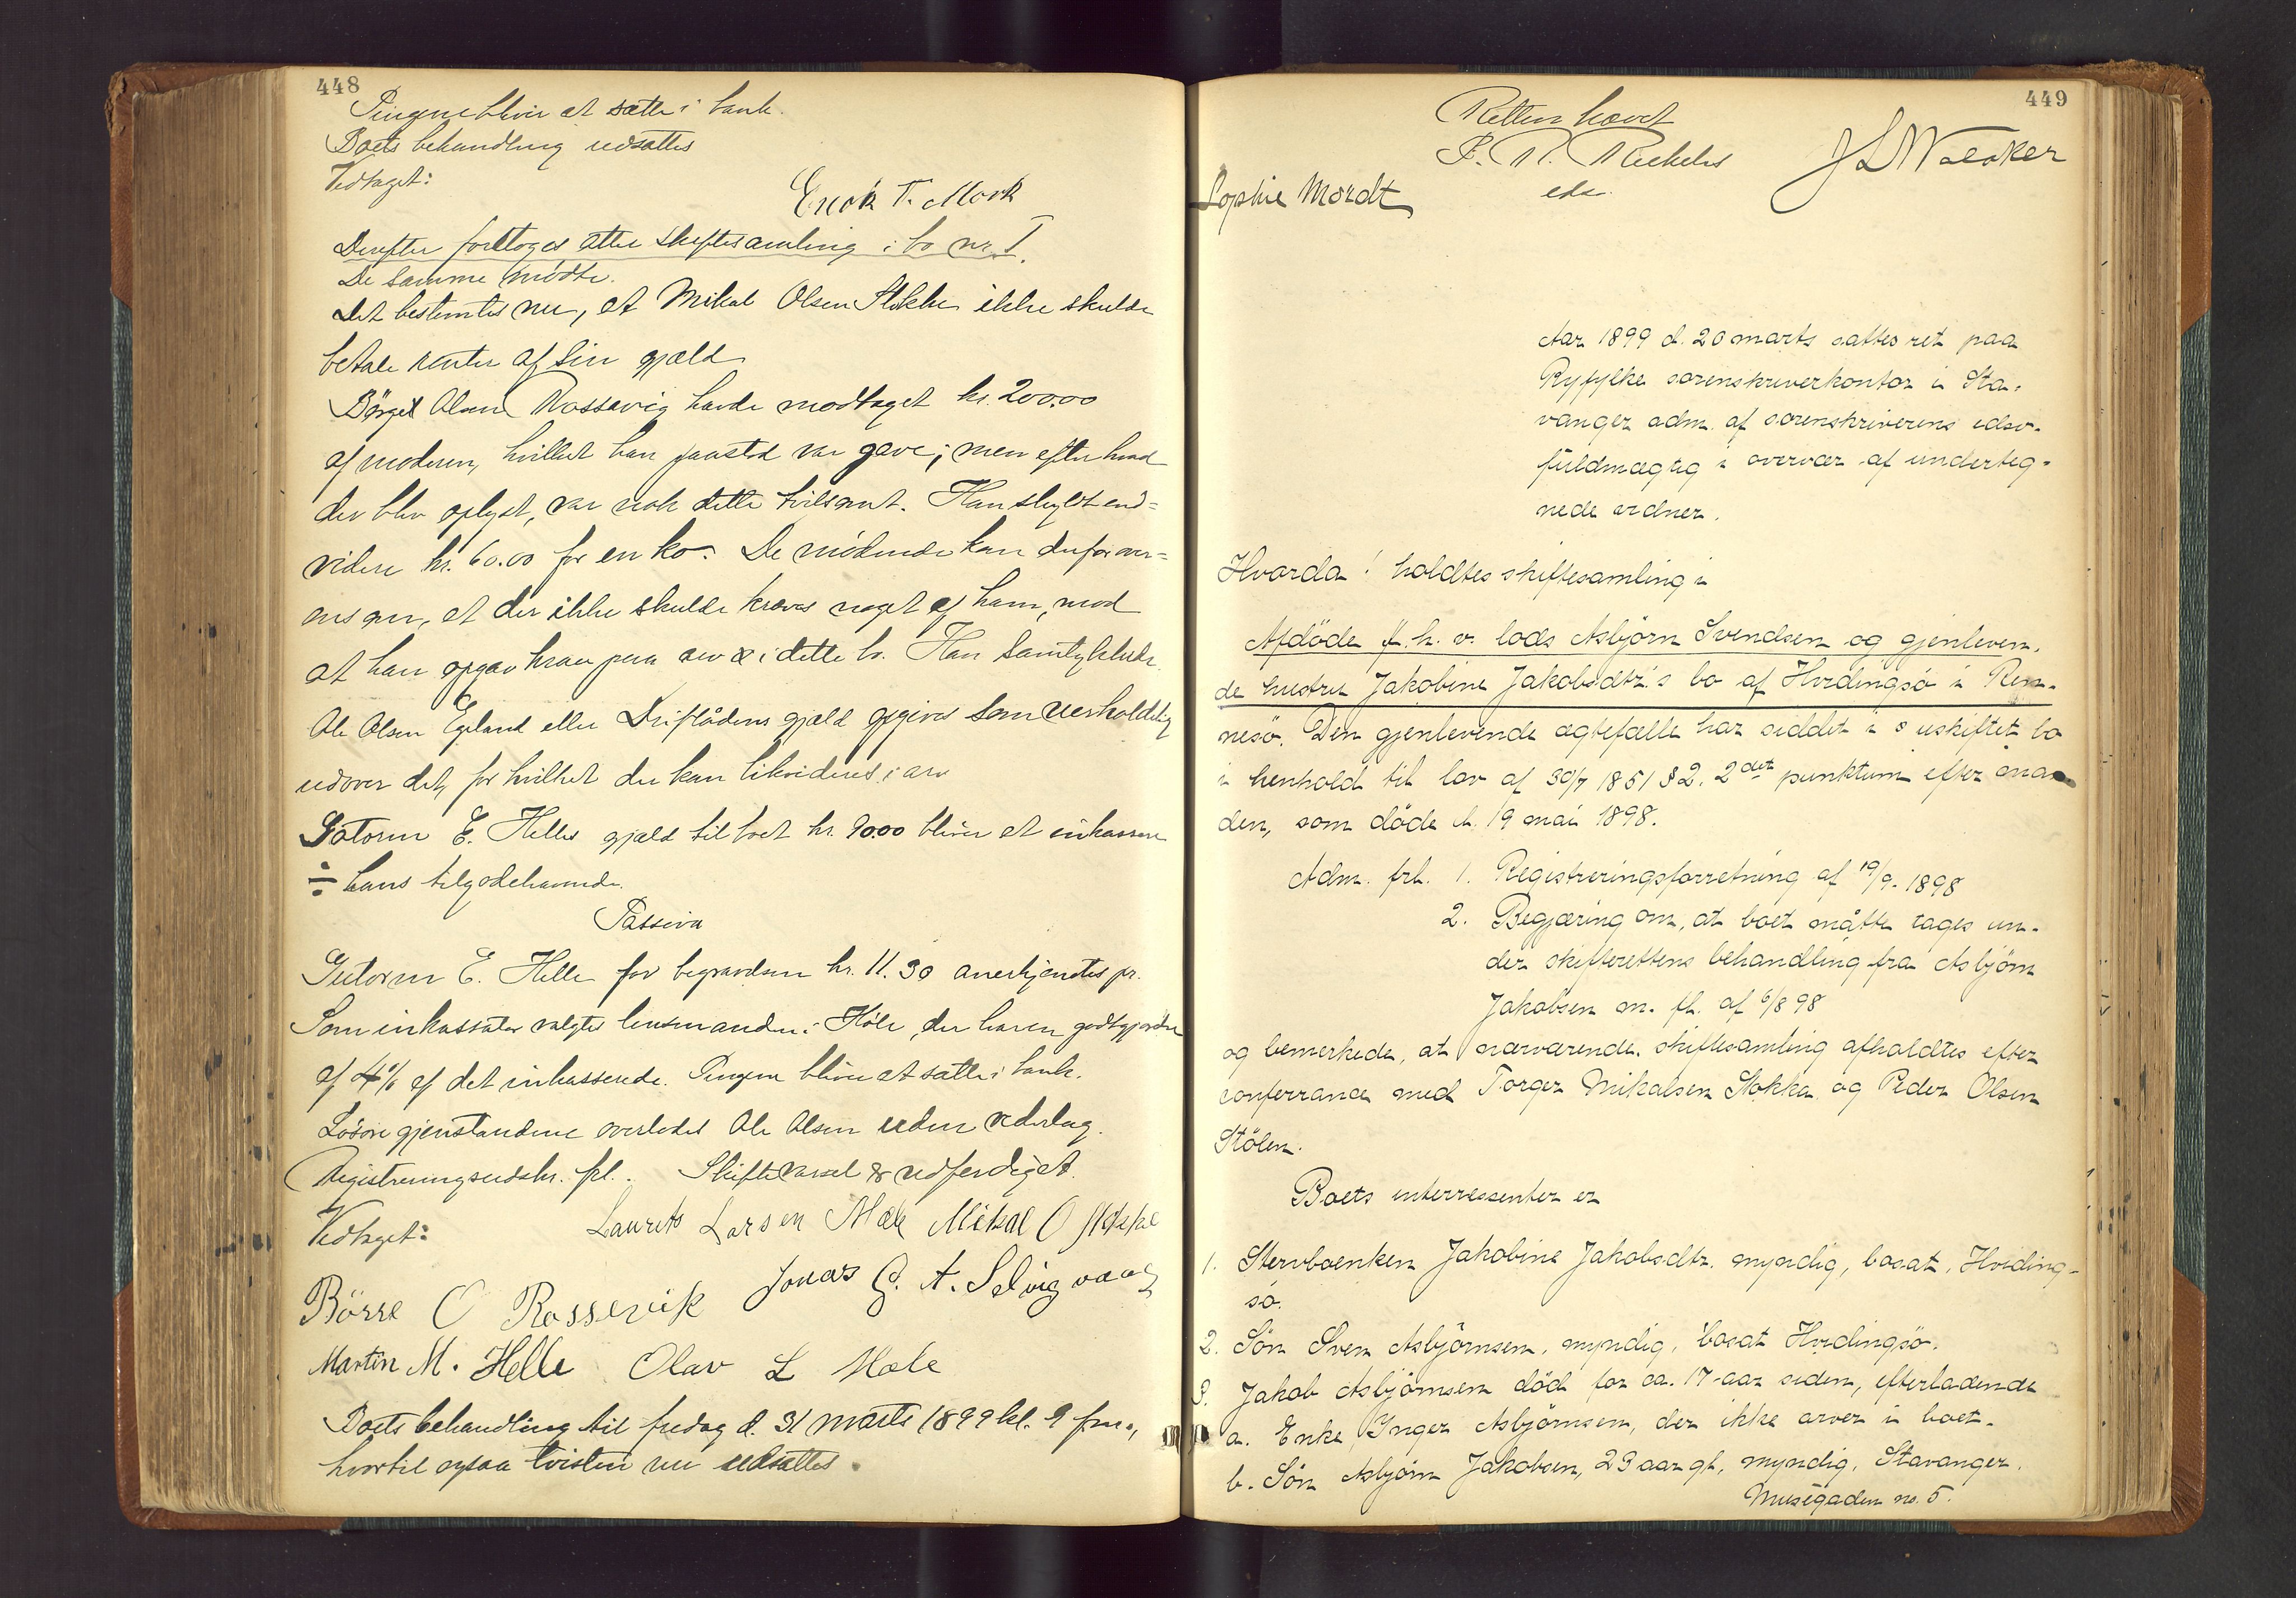 448
Pengene bliver at sætte i bank.
Boets behandling udsattes
Vedtaget:
Enok T. Mork
Derefter foretoges atter skiftesamling i bo nr. I.
De samme mødte.
Det bestemtes nu, at Mikal Olsen Stokke ikke skulde
betale renter af sin gjæld
Børge Olsen Rossavig havde modtaget kr. 200.00
af moderen, hvilket han paastod var gave; men efter hvad
der blev oplyst, var nok dette tvilsomt. Han skyldt end=
videre kr. 60.00 for en ko. De mødende kom derfor over=
ens om, at der ikke skulde kræves noget af ham, mod
at han opgav krav paa arv i dette bo. Han samtykkede.
Ole Olsen Egeland eller gjæld opgives som uerholdelig
udover det, for hvilket der kan likvideres i arv
Gutorm E. Helles gjæld til boet kr. 90.00 bliver at inkassere
÷ hans tilgodehavende.
Passiva
Gutorm E. Helle for begravelsen kr. 11.30 anerkjendtes pr.
Som inkassator valgtes lensmanden i Høle, der haren godtgjørelse
af 4% af det inkasserede. Pengene bliver at sætte i bank.
Løsøre gjenstandene overlodes Ole Olsen uden vederlag.
Registreringsudskr. frl. Skiftevarsel er udferdiget.
Vedtaget:
Laurits Larsen Mæle Mikal O Stokke
Børre O Rossevik Jonas G. A. Selvigvaag
Martin M. Helle Olav L Mæle
Boets behandling til fredag d. 31 marts 1899 kl. 9 fm.,
hvortil ogsaa tvisten nu udsattes.
449
Retten hævet
J L Waaker
eds.
Sophie Mordt
Aar 1899 d. 20 marts sattes ret paa
Ryfylke sorenskriverkontor i Sta-
vanger adm. af sorenskriverens edsv.
fuldmægtig i overvær af underteg-
nede vidner.
Hvorda! holdtes skiftesamling i
Afdöde f. h. v. lods Asbjörn Svendsen og gjenleven.
de hustru Jakobine Jakobsdtr.s bo af Hvidingsö i Ren-
nesö. Den gjenlevende ægtefælle har siddet i uskiftet bo
i henhold til lov af 30/7 1851 § 2. 2det punktum efter man
den, som döde d. 19 mai 1898.
Adm. frl. 1. Registreringsforretning af 19/9. 1898
2. Begjæring om, at boet måtte tages un-
der skifterettens behandling fra Asbjörn
Jakobsen m. fl. af 6/8 98
og bemerkede, at nærværende skiftesamling afholdtes efter
conferrance med Torger Mikalsen Stokka og Peder Olsen
Stölen.
Boets interressenter er
1. Stervboenken Jakobine Jakobsdtr. myndig, bosat, Hviding-
sö.
2. Sön Sven Asbjörnsen, myndig, bosat Hvidingsö.
3. Jakob Asbjörnsen död for ca. 17 aar siden, efterladende
a. Enke Inger Asbjörnsen, der ikke arver i boet.
b. Sön Asbjörn Jakobsen, 23 aar gl, myndig, Stavanger.
Musegaden no. 5.